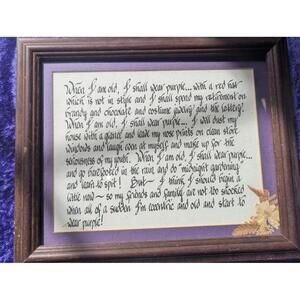 When I am old, I shall wear purple... with a red hat
which is not in style and I shall spend my retirement on
brandy and chocolate and costume jewelry and the lottery.
When I am old, I shall wear purple... I will dust my
house with a glance and leave my nose prints on clean store
windows and laugh even at myself and make up for the
seriousness of my youth. When I am old, I shall wear purple...
and go barefooted in the rain and do midnight gardening
and learn to spit! But~ I think I should begin a
little now~ so my friends and family are not too shocked
when all of a sudden I'm eccentric and old and start to
wear purple!